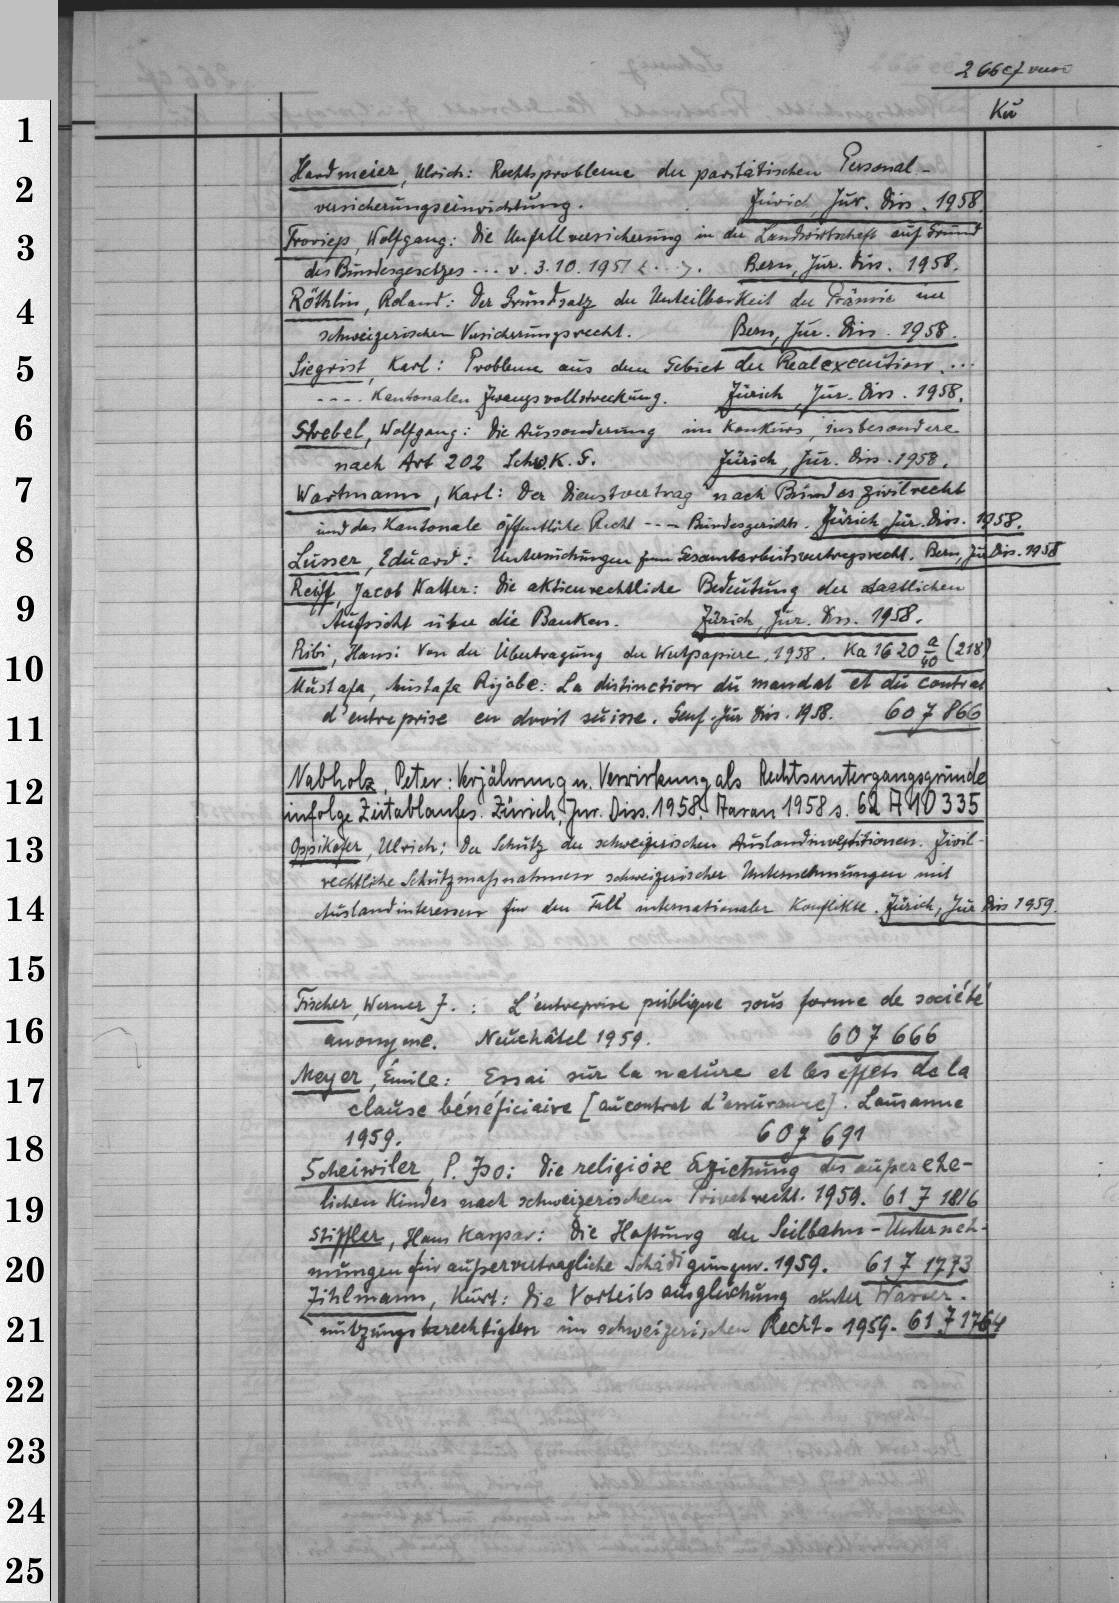 266 cf verso
Kü
1
2
3
4
5
6
7
8
9
10
11
12
13
14
15
16
17
18
19
20
21
22
23
24
25
Hardmeier, Ulrich: Rechtsprobleme der paritätischen Personal-
versicherungseinrichtung. Zürich, Jur. Diss. 1958.
Frovieps, Wolfgang: Die Unfallversicherung in der Landwirtschaft auf Grund
des Bundesgesetzes --- v. 3.10.1951 <...>. Bern, Jur. Diss. 1958.
Röthlin, Roland: Der Grundsatz der Unteilbarkeit der Prämie im
schweizerischen Versicherungsrecht. Bern, Jur. Diss. 1958.
Siegrist, Karl: Probleme aus dem Gebiet der Realexecution ...
---- Kantonalen Zwangsvollstreckung. Zürich, Jur. Diss. 1958.
Strebel, Wolfgang: Die Aussonderung im Konkurs, insbesondere
nach Art 202 SchK.G. Zürich, Jur. Diss. 1958.
Wartmann, Karl: Der Dienstvertrag nach Bundeszivilrecht
und das Kantonale öffentliche Recht --- Bundesgerichts. Zürich Jur. Diss. 1958.
Lusser, Eduard: Untersuchungen zum Gesamtarbeitsvertragsrecht. Bern, Jur Diss. 1958
Reiff, Jacob Walter: Die aktienrechtliche Bedeutung der staatlichen
Aufsicht über die Banken. Zürich, Jur. Diss. 1958.
Ribi, Hans: Von der Übertragung der Wertpapiere, 1958. Ka 1620 a/40 (218)
Mustafa, Mustafa Rijabe: La distinction du mandat et du contrat
d'entreprise en droit suisse. Genf. Jur Diss. 1958. 607 866
Nabholz, Peter: Verjährung u. Verwirkung als Rechtsuntergangsgründe
infolge Zeitablaufes. Zürich, Jur. Diss. 1958. Aarau 1958 s. 62 A 10 335
Oppikofer, Ulrich: Der Schutz der schweizerischen Auslandinvestitionen. Zivil-
rechtliche Schutzmaßnahmen schweizerischer Unternehmungen mit
Auslandinteressen für den Fall internationaler Konflikte. Zürich, Jur Diss 1959.
Fischer, Werner J.: L'entreprise publique sous forme de société
anonyme. Neuchâtel 1959. 607 666
Meyer, Émile: Essai sur la nature et les effets de la
clause bénéficiaire [au contrat d'assurance]. Lausanne
1959. 607 691
Scheiwiler, P. Iso: Die religiöse Erziehung des außerehe-
lichen Kindes nach schweizerischem Privatrecht. 1959. 61 J 1816
Stiffler, Hans Kaspar: Die Haftung der Seilbahn-Unterneh-
mungen für außervertragliche Schädigungen. 1959. 61 J 1773
Zihlmann, Kurt: Die Vorteilsausgleichung unter Wasser-
nutzungsberechtigten im schweizerischen Recht. 1959. 61 J 1764